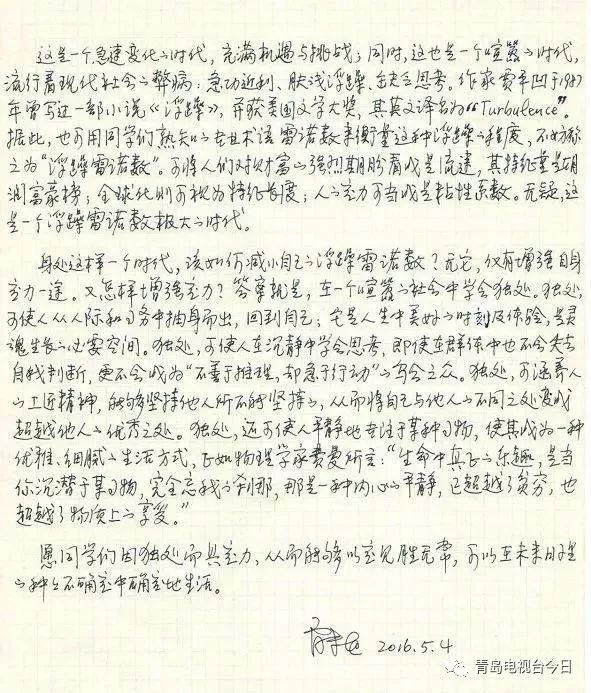 这是一个急速变化的时代，充满机遇与挑战；同时，这也是一个喧嚣的时代，
流行着现代社会的弊病：急功近利、肤浅浮躁、缺乏思考。作家贾平凹于1987
年曾写过一部小说《浮躁》，并获美国文学大奖，其英文译名为“Turbulence”。
据此，也可用同学们熟知的专业术语雷诺数来衡量这种浮躁的程度，不妨称
之为“浮躁雷诺数”。可将人们对财富的强烈期盼看成是流速，其特征量是胡
润富豪榜；全球化则可视为特征长度；人的定力可当成是粘性系数。无疑，这
是一个浮躁雷诺数极大的时代。
身处这样一个时代，该如何减小自己的浮躁雷诺数？无它，仅有增强自身
定力一途。又怎样增强定力？答案就是，在一个喧嚣的社会中学会独处。独处，
可使人从人际和习务中抽身而出，回到自己；它是人生中美好的时刻及体验，是灵
魂生长的必要空间。独处，可使人在沉静中学会思考，即使在群体中也不会失去
自我判断，更不会成为“不善于推理，却急于行动”的乌合之众。独处，可涵养人
的工匠精神，能够坚持他人所不能坚持的，从而将自己与他人的不同之处变成
超越他人的优秀之处。独处，还可使人平静地专注于某种习物，使其成为一种
优雅、细腻的生活方式，正如物理学家费曼所言：“生命中真正的乐趣，是当
你沉潜于某习物，完全忘我的刹那，那是一种内心的平静，已超越了贫穷，也
超越了物质上的享受。”
愿同学们因独处而具定力，从而能够以定见胜无常，可以在未来日程
的种种不确定中确定地生活。
2016.5.4
青岛电视台今日